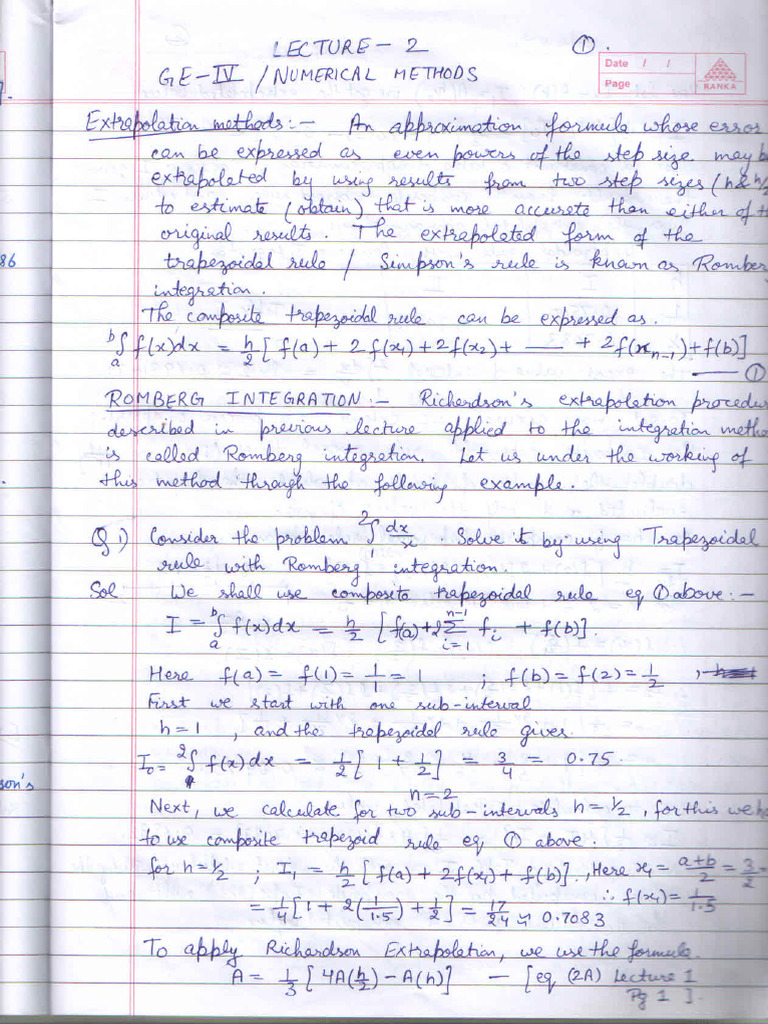 LECTURE - 2
①.
GE-IV / NUMERICAL METHODS
Date / /
Page
RANKA
Extrapolation methods:- An approximation formula whose error
can be expressed as even powers of the step size may be
extrapolated by using results from two step sizes (h & h/2
to estimate (obtain) that is more accurete than either of th
original results. The extrapolated form of the
86
trapezoidal rule / Simpson's rule is known as Romberg
integration.
The composite trapezoidal rule can be expressed as.
b∫a f(x)dx = h/2 [ f(a) + 2f(x1) + 2f(x2) + —— + 2f(xn-1) + f(b)]
— ①
ROMBERG INTEGRATION:- Richardson's extrapolation procedur
described in previous lecture applied to the integration metho
is called Romberg integration. Let us under the working of
this method through the following example.
Q 1) Consider the problem 2∫1 dx/x. Solve it by using Trapezoidal
rule with Romberg integration.
Sol We shall use composite trapezoidal rule eq ① above:-
I = b∫a f(x)dx = h/2 [f(a) + 2 n-1Σi=1 fi + f(b)].
Here f(a) = f(1) = 1/1 = 1 ; f(b) = f(2) = 1/2 ,
First we start with one sub-interval
h = 1 , and the trapezoidal rule gives.
I0 = 2∫1 f(x)dx = 1/2 [1 + 1/2] = 3/4 = 0.75.
son's
n = 2
Next, we calculate for two sub-intervals h = 1/2 , for this we h
to use composite trapezoid rule eq ① above.
for h = 1/2 ; I1 = h/2 [f(a) + 2f(x1) + f(b)]. , Here x1 = a+b/2 = 3/2 =
∴ f(x1) = 1/1.5
= 1/4 [1 + 2(1/1.5) + 1/2] = 17/24 ≈ 0.7083
To apply Richardson Extrapolation, we use the formula.
A = 1/3 [4A(h/2) - A(h)] — [eq (2A) Lecture 1
Pg 1 ].